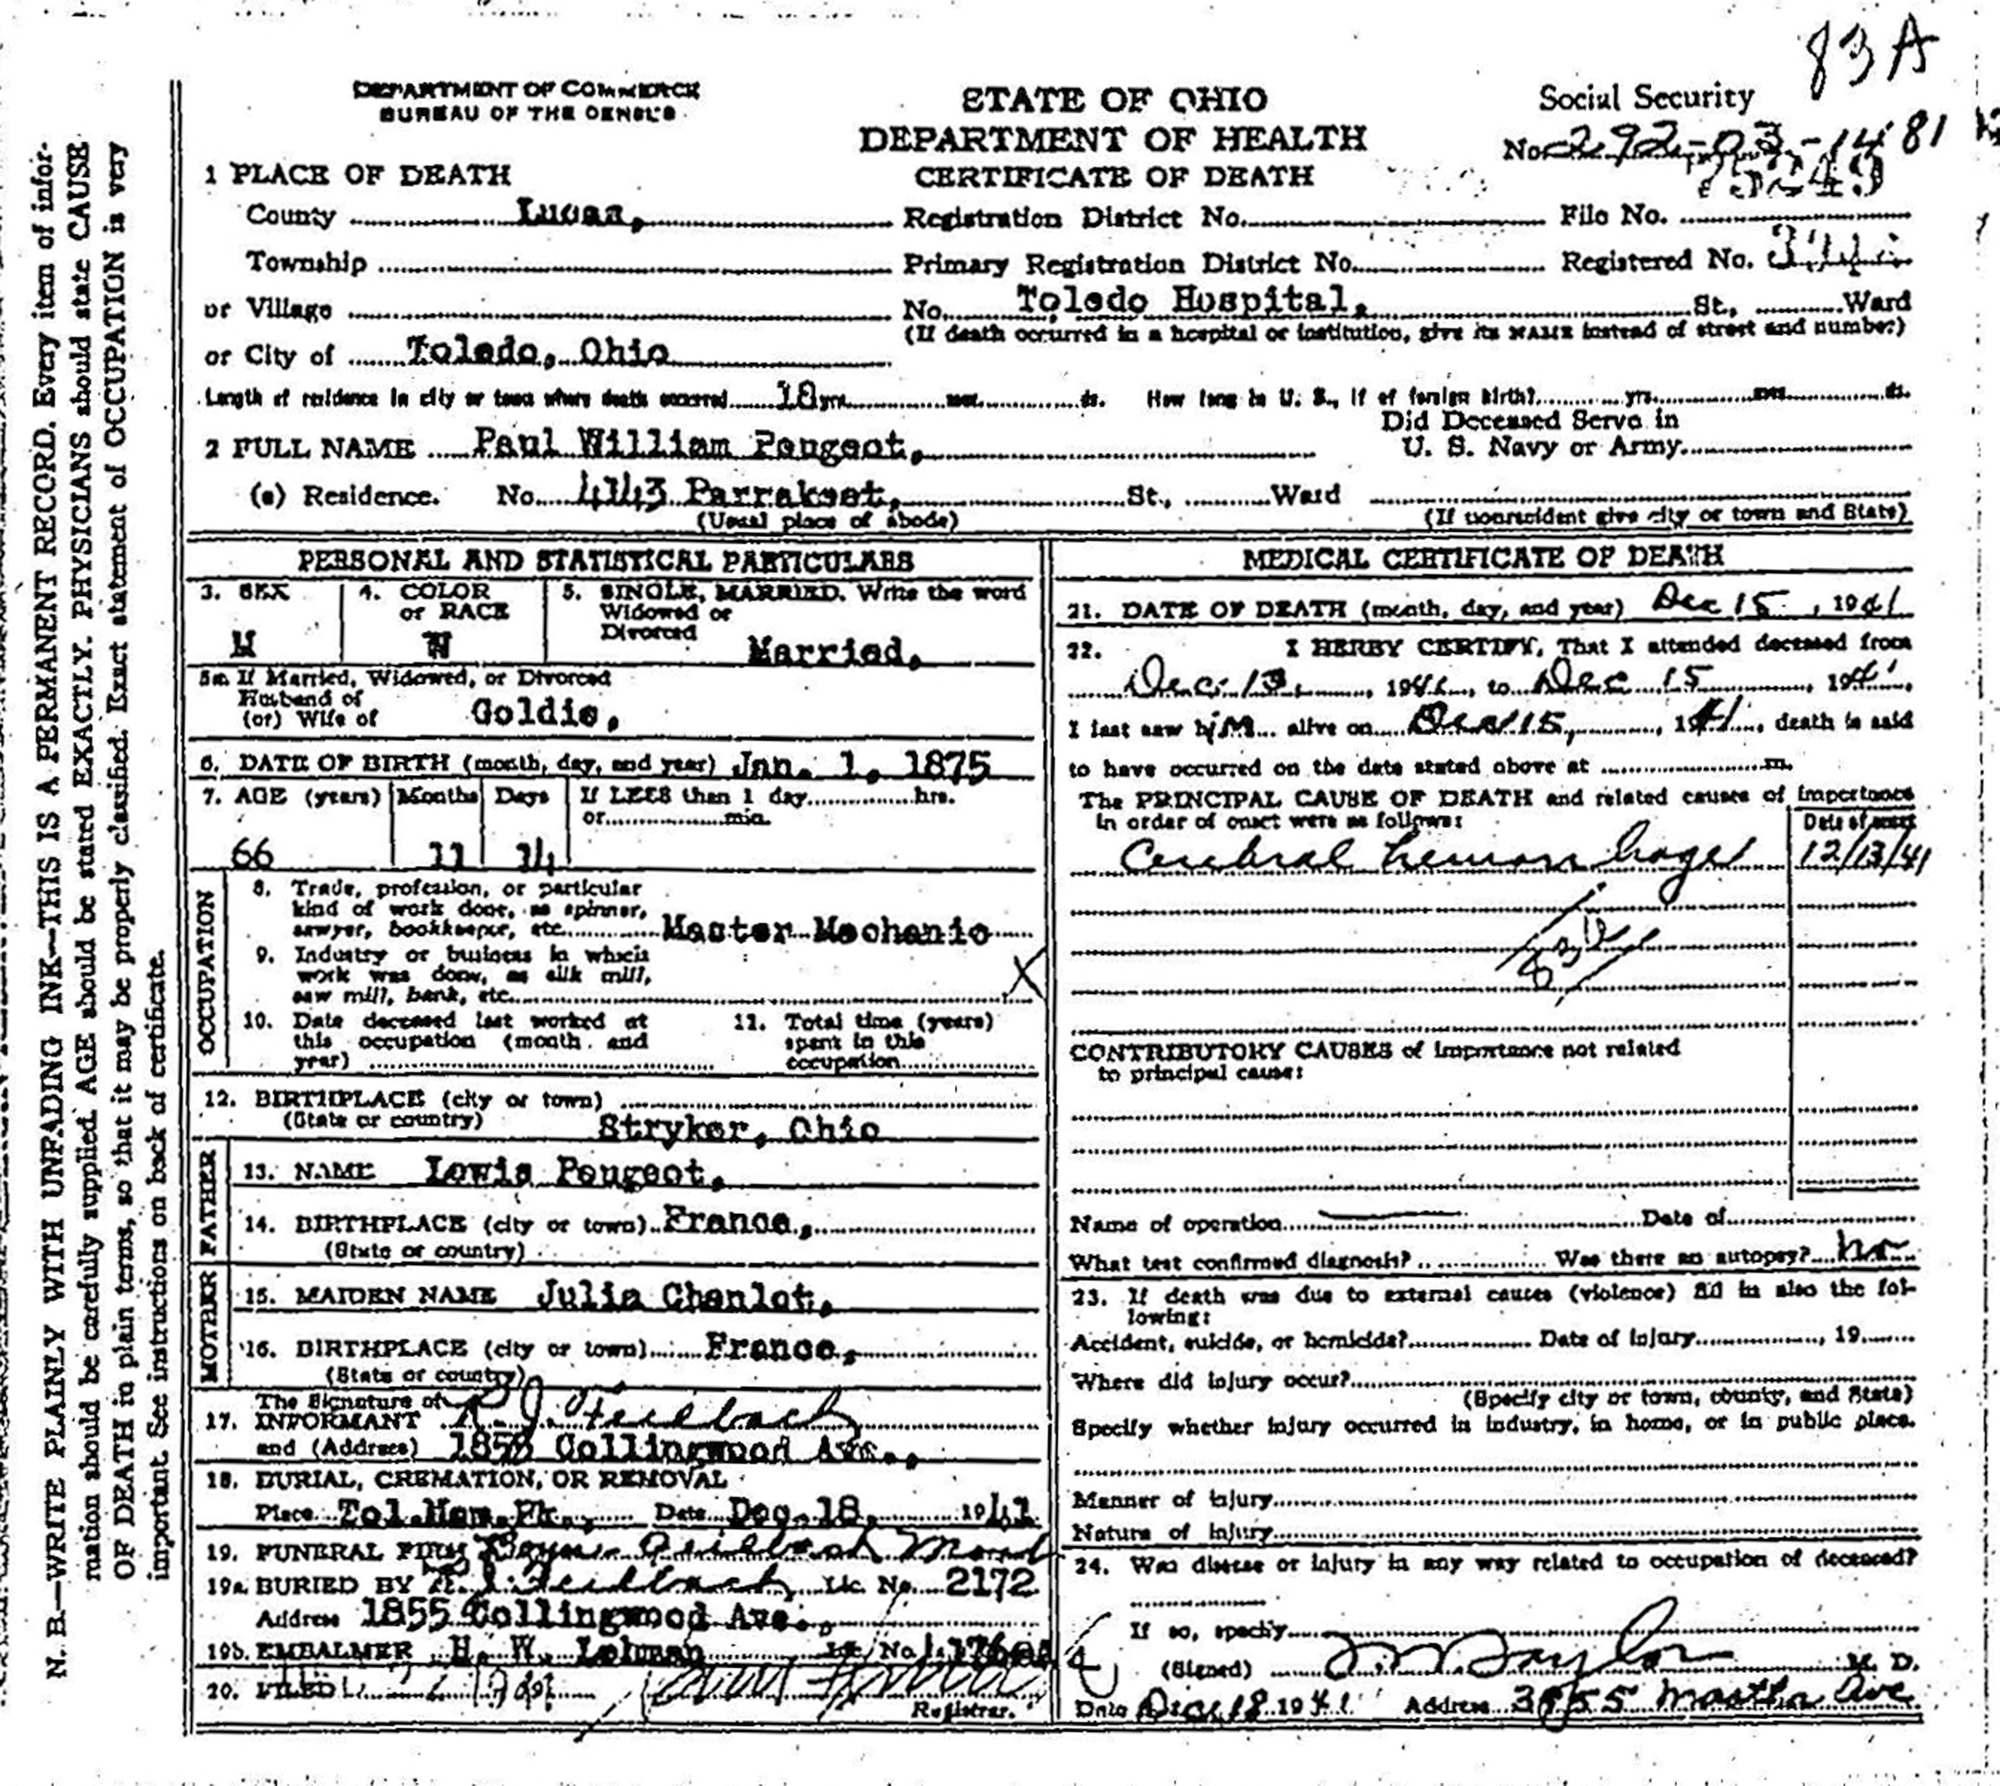 83A
DEPARTMENT OF COMMERCE
BUREAU OF THE CENSUS
STATE OF OHIO
DEPARTMENT OF HEALTH
CERTIFICATE OF DEATH
Social Security
No. 292-03-1481
75249
1 PLACE OF DEATH
County Lucas,
Registration District No.
File No.
Township
Primary Registration District No.
Registered No.
or Village
No. Toledo Hospital, St., Ward
(If death occurred in a hospital or institution, give its NAME instead of street and number)
or City of Toledo, Ohio
Length of residence in city or town where death occurred 18 yrs. mos. ds. How long in U. S., if of foreign birth? yrs. mos. ds.
Did Deceased Serve in
U. S. Navy or Army
2 FULL NAME Paul William Peugeot,
(a) Residence. No. 4143 Parrakeet, St., Ward
(Usual place of abode) (If nonresident give city or town and State)
PERSONAL AND STATISTICAL PARTICULARS
3. SEX
M
4. COLOR or RACE
W
5. SINGLE, MARRIED. Write the word
Widowed or
Divorced
Married,
5a. If Married, Widowed, or Divorced
Husband of
(or) Wife of Goldie,
6. DATE OF BIRTH (month, day, and year) Jan. 1, 1875
7. AGE (years) Months Days If LESS than 1 day hrs.
or min.
66 11 14
OCCUPATION
8. Trade, profession, or particular
kind of work done, as spinner,
sawyer, bookkeeper, etc. Master Mechanic
9. Industry or business in which
work was done, as silk mill,
saw mill, bank, etc. X
10. Date deceased last worked at
this occupation (month and
year)
11. Total time (years)
spent in this
occupation
12. BIRTHPLACE (city or town)
(State or country) Stryker, Ohio
FATHER
13. NAME Lewis Peugeot,
14. BIRTHPLACE (city or town) France,
(State or country)
MOTHER
15. MAIDEN NAME Julia Chanlot,
16. BIRTHPLACE (city or town) France,
(State or country)
The Signature of
17. INFORMANT R. J. Feilbach
and (Address) 1855 Collingwood Ave.,
18. BURIAL, CREMATION, OR REMOVAL
Place Tol.Mem.Pk., Date Dec.18, 1941
19. FUNERAL FIRM
19a. BURIED BY R. J. Feilbach Lic. No. 2172
Address 1855 Collingwood Ave.,
19b. EMBALMER H. W. Lehman Lic. No.
20. FILED
Registrar.
MEDICAL CERTIFICATE OF DEATH
21. DATE OF DEATH (month, day, and year) Dec 15, 1941
22. I HERBY CERTIFY, That I attended deceased from
Dec. 13, 1941, to Dec 15, 1941,
I last saw him alive on Dec 15, 1941, death is said
to have occurred on the date stated above at m.
The PRINCIPAL CAUSE OF DEATH and related causes of importance
in order of onset were as follows:
Date of onset
Cerebral hemorrhage 12/13/41
CONTRIBUTORY CAUSES of importance not related
to principal cause:
Name of operation Date of
What test confirmed diagnosis? Was there an autopsy? no
23. If death was due to external causes (violence) fill in also the fol-
lowing:
Accident, suicide, or homicide? Date of injury, 19
Where did injury occur?
(Specify city or town, county, and State)
Specify whether injury occurred in industry, in home, or in public place.
Manner of injury
Nature of injury
24. Was disease or injury in any way related to occupation of deceased?
If so, specify
(Signed) Taylor M. D.
Date Dec 18 1941 Address
N. B.—WRITE PLAINLY WITH UNFADING INK—THIS IS A PERMANENT RECORD. Every item of infor-
mation should be carefully supplied. AGE should be stated EXACTLY. PHYSICIANS should state CAUSE
OF DEATH in plain terms, so that it may be properly classified. Exact statement of OCCUPATION is very
important. See instructions on back of certificate.